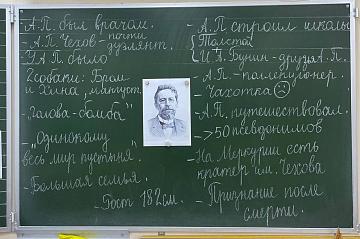 - А.П. был врачом.
- А.П. Чехов - почти
дуэлянт.
- У А.П. было
2 собаки: Бром
и Хина, мангуст.
- "Голова-бомба"
- "Одинокому
весь мир пустыня"
- Большая семья.
- Рост 182 см.
- А.П. строил школы
Толстой
И.А. Бунин - друзья А.П.
- А.П. - полиционер.
- Чахотка
- А.П. путешествовал.
- >50 псевдонимов
- На Меркурии есть
кратер им. Чехова
- Признание после
смерти.